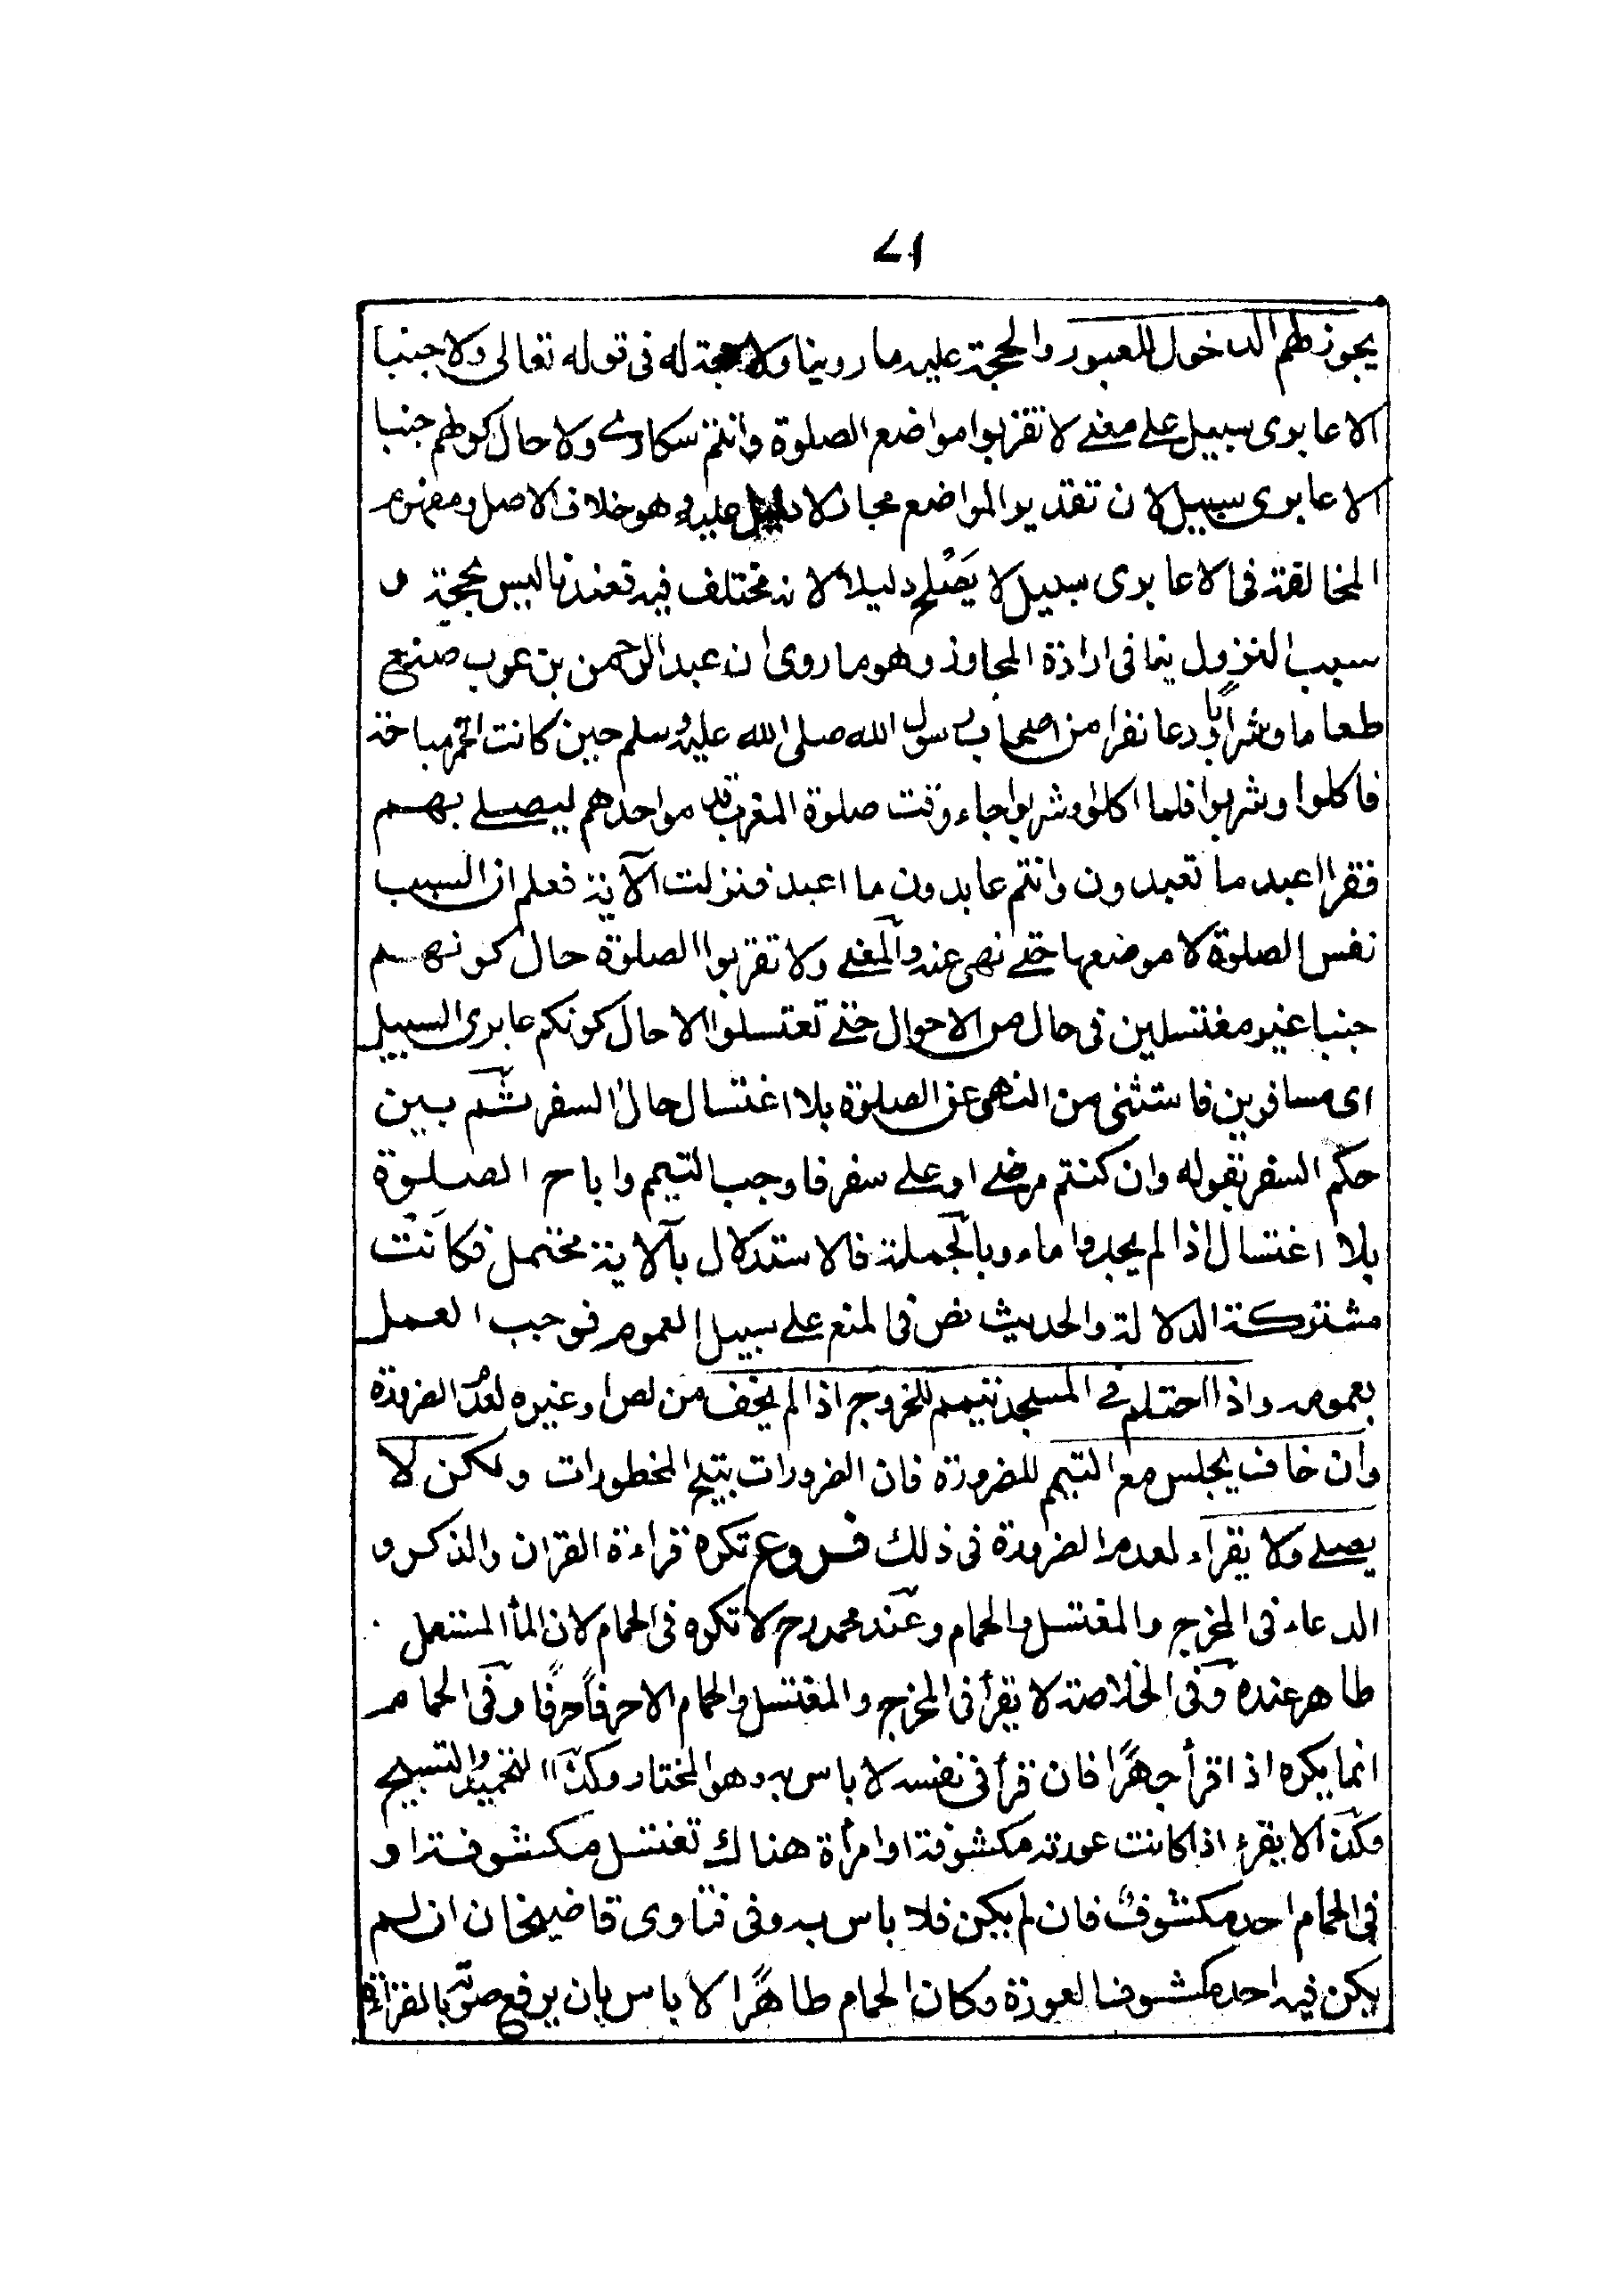 ٤١
يجوز لهم الدخول للعبور والحجة عليه ما روينا ولا حجة له فى قوله تعالى ولا جنبا
الا عابرى سبيل على معنے لا تقربوا مواضع الصلوة وانتم سكارے ولا حال كونهم جنبا
الا عابرى سبيل لان تقدير المواضع مجاز لا دليل عليه وهو خلاف الاصل ومفهوم
المخالفة فى الا عابرى سبيل لا يصلح دليلا لانه مختلف فيه فعندنا ليس بحجة و
سبب النزول ينافى ارادة المجاوز وهو ما روى ان عبد الرحمن بن عوف صنع
طعاما وشرابا ودعا نفرا من اصحاب رسول الله صلى الله عليه وسلم حين كانت الخمر مباحة
فاكلوا وشربوا فلما اكلوا وشربوا جاء وقت صلوة المغرب فقدموا احدهم ليصلے بهم
فقرا اعبد ما تعبدون وانتم عابدون ما اعبد فنزلت الآية فعلم ان السبب
نفس الصلوة لا موضعها حتے نهى عنه والمعنے ولا تقربوا الصلوة حال كونهم
جنبا غير مغتسلين فى حال من الاحوال حتے تغتسلوا الا حال كونكم عابرى السبيل
اى مسافرين فاستثنى من النهى عن الصلوة بلا اغتسال حال السفر ثم بين
حكم السفر بقوله وان كنتم مرضے او علے سفر فاوجب التيمم واباح الصلوة
بلا اغتسال اذا لم يجدوا ماء وبالجملة فالاستدلال بالآية محتمل فكانت
مشتركة الدلالة والحديث نص فى المنع علے سبيل العموم فوجب العمل
بعمومه واذا احتلم فے المسجد تيمم للخروج اذا لم يخف من لص او غيره لعدم الضرورة
وان خاف يجلس مع التيمم للضرورة فان الضرورات تبيح المحظورات ولكن لا
يصلے ولا يقراء لعدم الضرورة فى ذلك فروع تكره قراءة القران والذكر و
الدعاء فى المخرج والمغتسل والحمام وعند محمد رح لا تكره فى الحمام لان الماء المستعمل
طاهر عنده وفى الخلاصة لا يقرأ فى المخرج والمغتسل والحمام الا حرفًا حرفًا وفى الحمام
انما يكره اذا قرأ جهرًا فان قرأ فى نفسه لا باس به وهو المختار وكذا التحميد والتسبيح
وكذا لا يقرء اذا كانت عورته مكشوفة او امرأة هناك تغتسل مكشوفة او
فى الحمام احد مكشوف فان لم يكن فلا باس به وفى فتاوى قاضيخان ان لم
يكن فيه احد مكشوف العورة وكان الحمام طاهرًا لا باس بان يرفع صوته بالقراءة